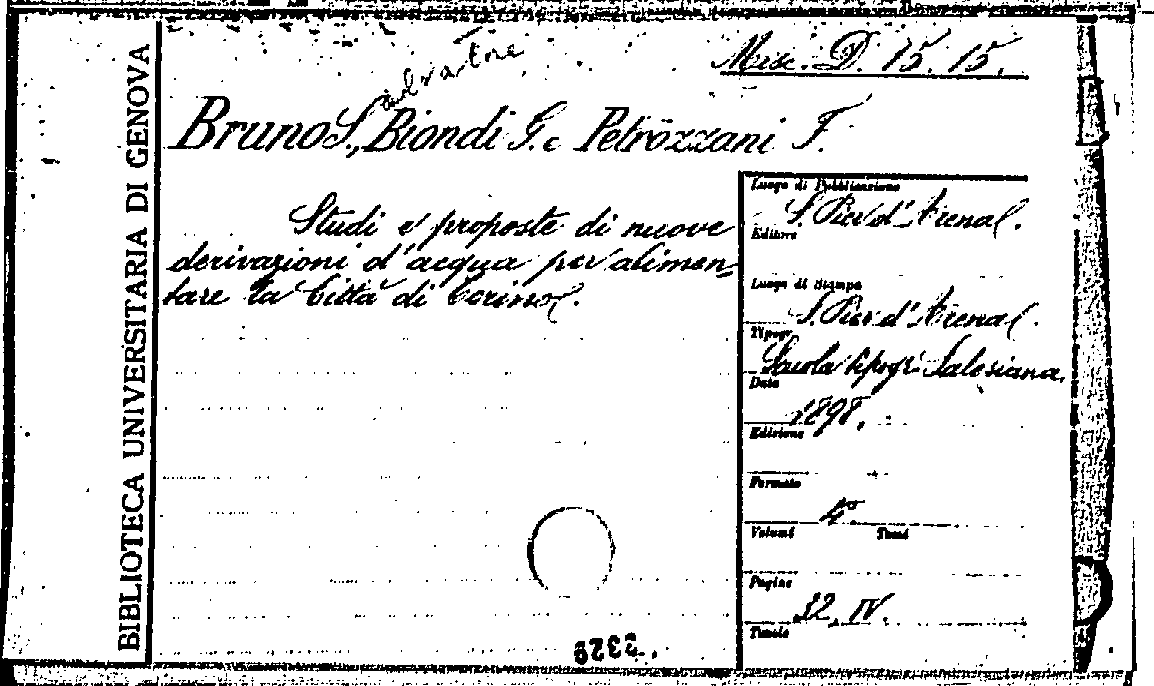 BIBLIOTECA UNIVERSITARIA DI GENOVA
Misc. D. 15. 15.
Salvatore
Bruno S., Biondi G. e Petrozzani F.
Studi e proposte di nuove
derivazioni d'acqua per alimen-
tare la Città di Torino.
Luogo di Pubblicazione
S. Pier d'Arena.
Editore
Luogo di Stampa
S. Pier d'Arena.
Tipogr.
Scuola tipogr. Salesiana.
Data
1898.
Edizione
Formato
4°
Volumi Tomi
Pagine
32, IV.
Tavole